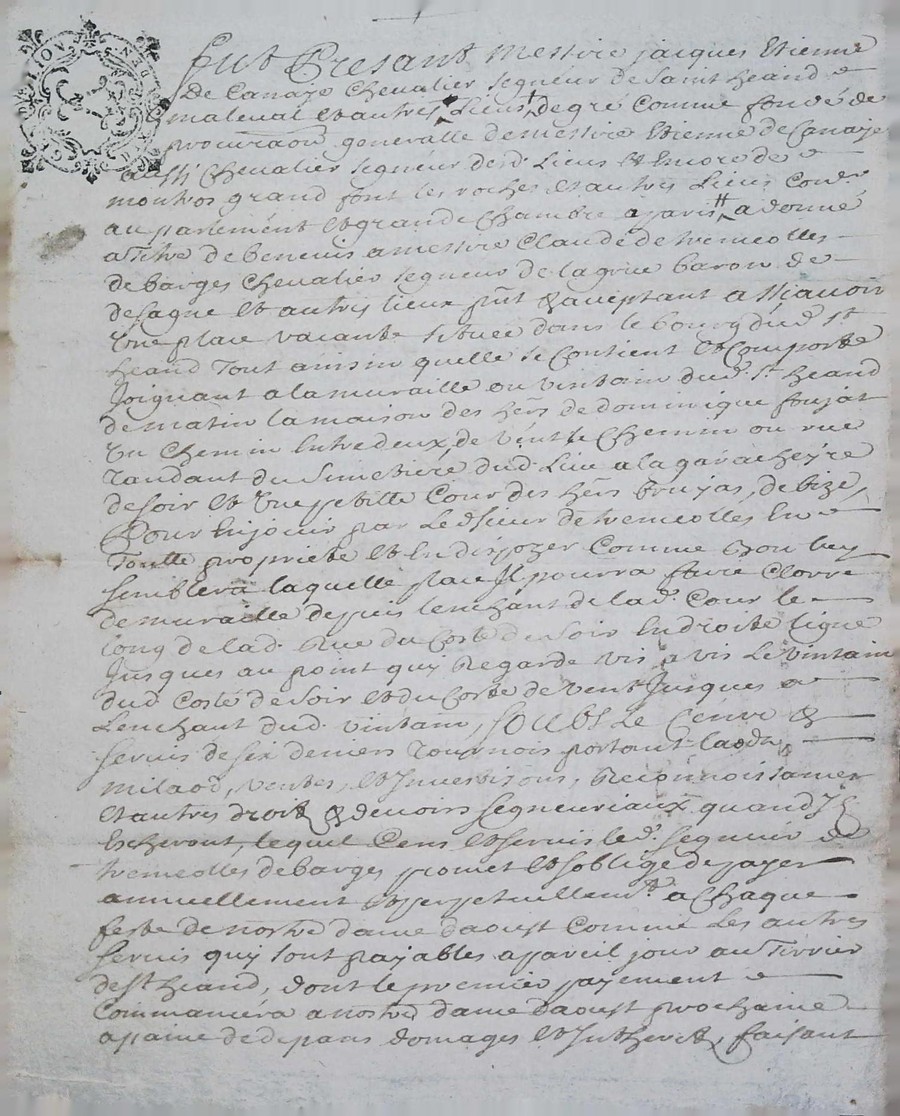 fut Presant messire jacques Etienne
De Canaye Chevalier segneur de Saint heand
maleval et autres Lieux de gré comme fondé de
procuraon generalle de messire Etienne de Canaye
aussi Chevalier segneur desd. Lieus et Encore de
montros grand font les roches et autres Lieus Conser
au parlément et grande Chambre a paris a donné
a titre de benevis a messire Claude de tremeolles
de barges Chevalier segneur de la grue baron de
et autres lieux pñt & aceptant assavoir
Une place vacante située dans le bourg dud. st
heand Tout ainsin quelle se Contient et Comporte
Joignant a la muraille ou vintain dud. st heand
de matin la maison des hers de dominique foujat
Un Chemin Entredeux, de vent le Chemin ou rue
Tandant du Simetiére dud. Lieu a la
de soir et Une petitte Cour des hers brujas, de bize,
Pour En jouir par Led sieur de tremeolles En
Toutte propriete et En dispozer Comme bon luy
semblera laquelle place Il pourra faire Clorre
de muraille depuis lenchant de lad. Cour le
long de lad. Rue du Costé de Soir En droite ligne
Jusques au point quy Regarde vis a vis Le vintain
dud. Costé de Soir et du Costé de vent Jusques a
Lenchant dud. vintain, soubs Le Cenve &
servis de six deniers Tournois portant laods,
milaod, ventes, et Investisons, Reconnoissances
et autres droits & devoirs segneuriaux quand Ils
Escheront, lequel Cens et servis led. segneur de
tremeolles de barges promet et soblige de payer
annuellement et perpetuellemt. a Chaque
feste de nostre dame daoust Comme Les autres
servis quy sont payables a pareil jour au Terrier
de st heand, dont le premier payement
Commancéra a nostre dame daoust prochaine
a paine de depans domages et Intherets, faisant